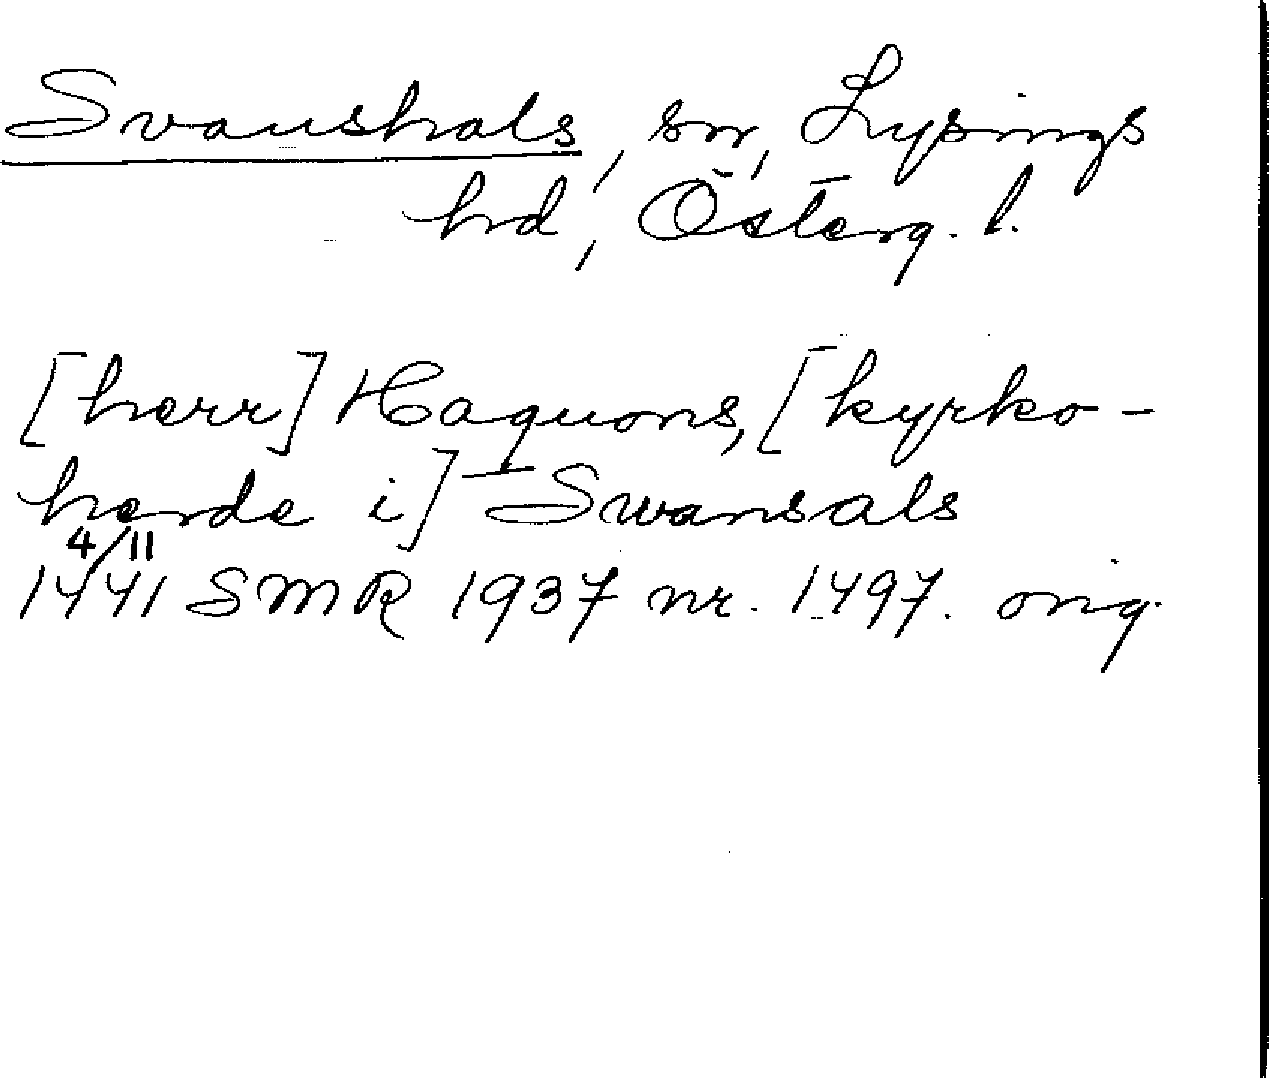 Svanshals, sn, Lysings
hd, Österg. l.
[herr] Haquons, [kyrko-
herde i] Swansals
4/11
1441 SMR 1937 nr. 1497. orig.